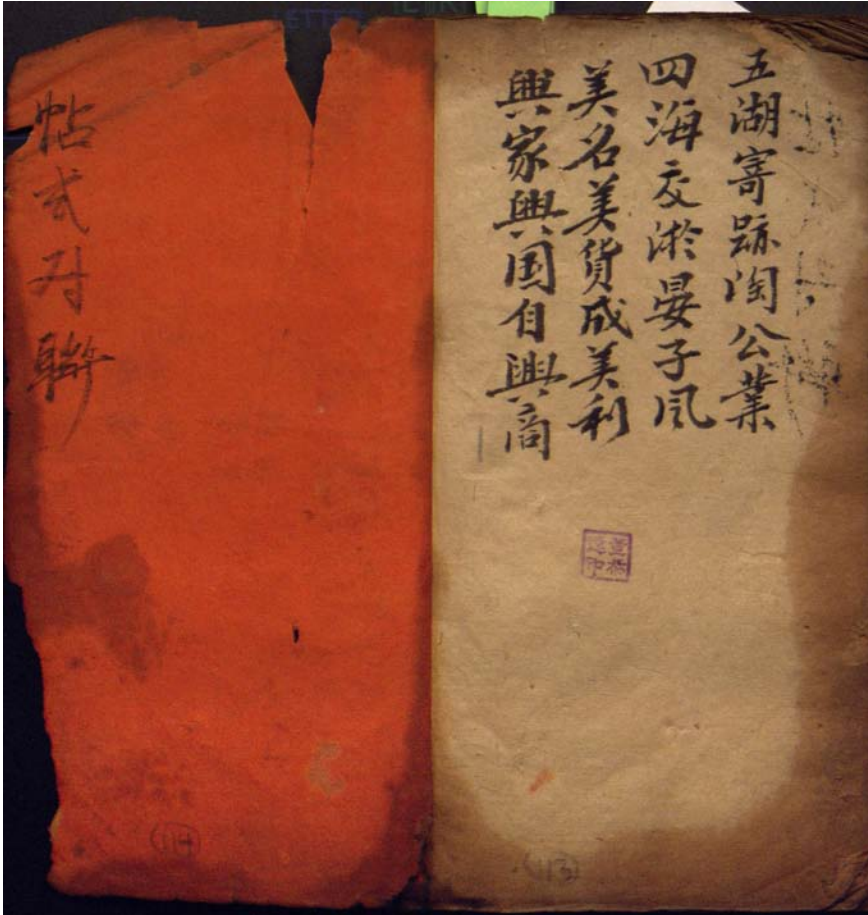 五湖寄跡淘公業
四海交游晏子风
美名美貨成美利
興家興国自興商
帖式对聯
113
114